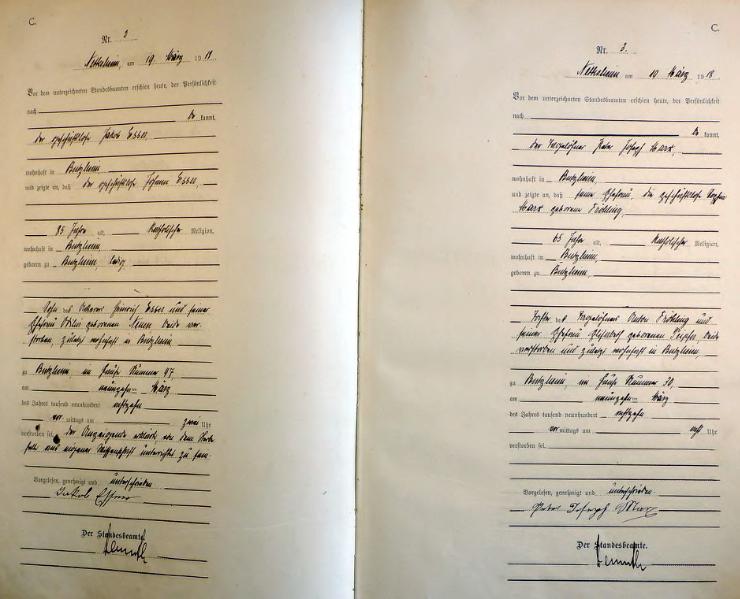 C.
Nr. 2
Nettesheim, am 19. März 1918
Vor dem unterzeichneten Standesbeamten erschien heute, der Persönlichkeit
nach
be kannt,
der geschäftslose Jakob Esser,
wohnhaft in Butzheim,
und zeigte an, daß der geschäftslose Johann Esser,
85 Jahre alt, katholischer Religion,
wohnhaft in Butzheim,
geboren zu Butzheim, ledig,
Sohn des Ackerers Heinrich Esser und seiner
Ehefrau geborenen beide ver-
storben, zuletzt wohnhaft in Butzheim
zu Butzheim, im Hause Nummer 47,
am neunzehn- März
des Jahres tausend neunhundert achtzehn
vor mittags um zwei Uhr
verstorben sei. der Anzeigende erklärte von dem Sterbe-
falle aus eigener Wissenschaft unterrichtet zu sein.
Vorgelesen, genehmigt und unterschrieben
Jakob Esser
Der Standesbeamte.
C.
Nr. 3.
Nettesheim am 19 März 1918
Vor dem unterzeichneten Standesbeamten erschien heute, der Persönlichkeit
nach
be kannt,
der Tagelöhner Peter Joseph Marx,
wohnhaft in Butzheim,
und zeigte an, daß seine Ehefrau, die geschäftslose
Marx geborene Fröhling,
65 Jahre alt, katholischer Religion,
wohnhaft in Butzheim,
geboren zu Butzheim,
Tochter des Tagelöhners Anton Fröhling und
seiner Ehefrau Elisabeth geborenen beide
verstorben und zuletzt wohnhaft in Butzheim
zu Butzheim im Hause Nummer 30,
am neunzehn- März
des Jahres tausend neunhundert achtzehn
vor mittags um acht Uhr
verstorben sei.
Vorgelesen, genehmigt und unterschrieben
Peter Joseph Marx
Der Standesbeamte.